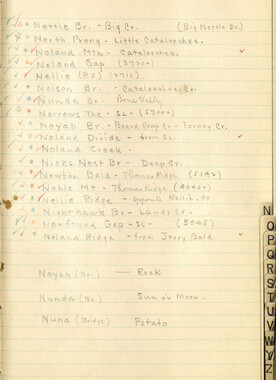 Nettle Br. - Big Cr. (Big Nettle Br.)
North Prong - Little Cataloochee
Noland Mtn - Cataloochee
Noland Gap (3700)
Nellie (P.O.)
Nelson Br. - Cataloochee Cr.
Nunda Br.
Narrows The - SL - (5300+)
Noyah Br. - Board Camp Cr - Forney Cr.
Noland Divide - from SL.
Noland Creek -
Nicks Nest Br - Deep Cr.
Newton Bald - Thomas Ridge (5142)
Noble Mt - Thomas Ridge (4000+)
Nellie Ridge - Nellie PO
Nighthawk Br -
Newfound Gap - SL - (5045)
Noland Ridge - from Jerry Bald
Noyah (Br.) — Rock
Nunda (Br.) Sun or Moon.
Nuna (Ridge) Potato
N
O
P
Q
R
S
T
U
V
W
Y
Z